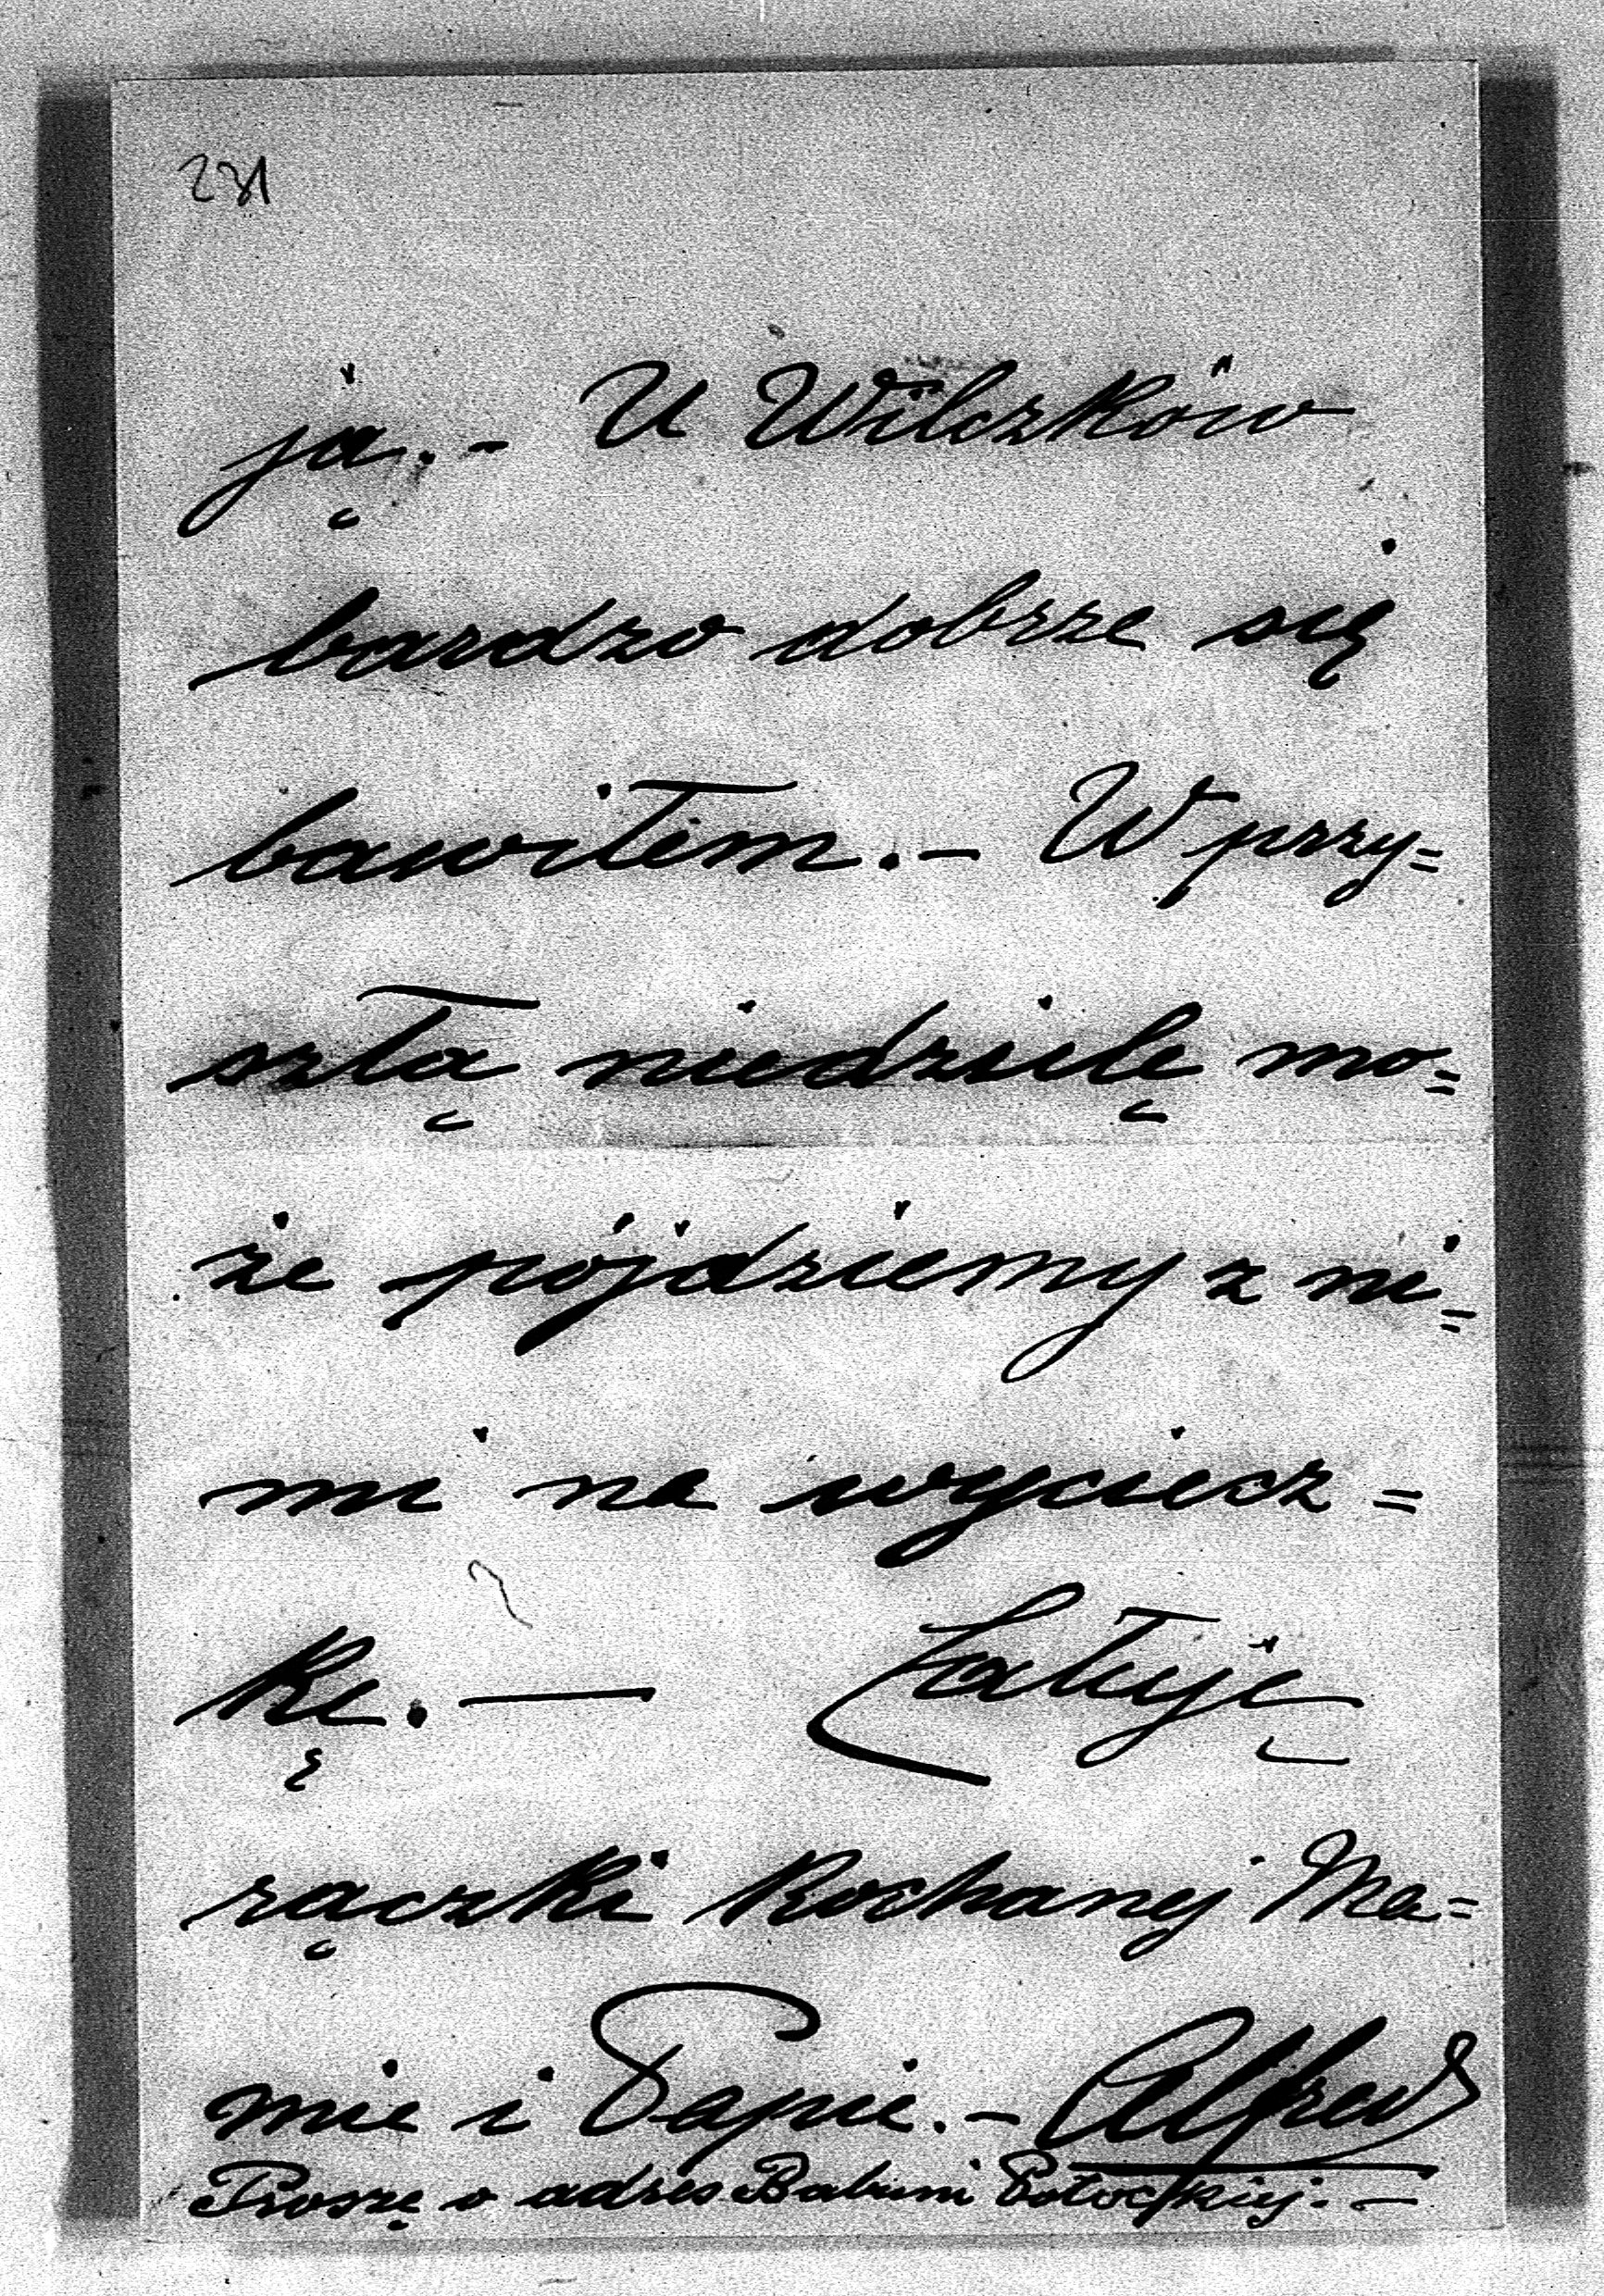 231
ją. - U Wilczków
bardzo dobrze się
bawiłem. - W przy=
szłą niedzielę mo=
że pójdziemy z ni=
mi na wyciecz=
kę. — Całuję
rączki Kochanej Ma=
mie i Papie. - Alfred
Proszę o adres Babuni Potockiej. -